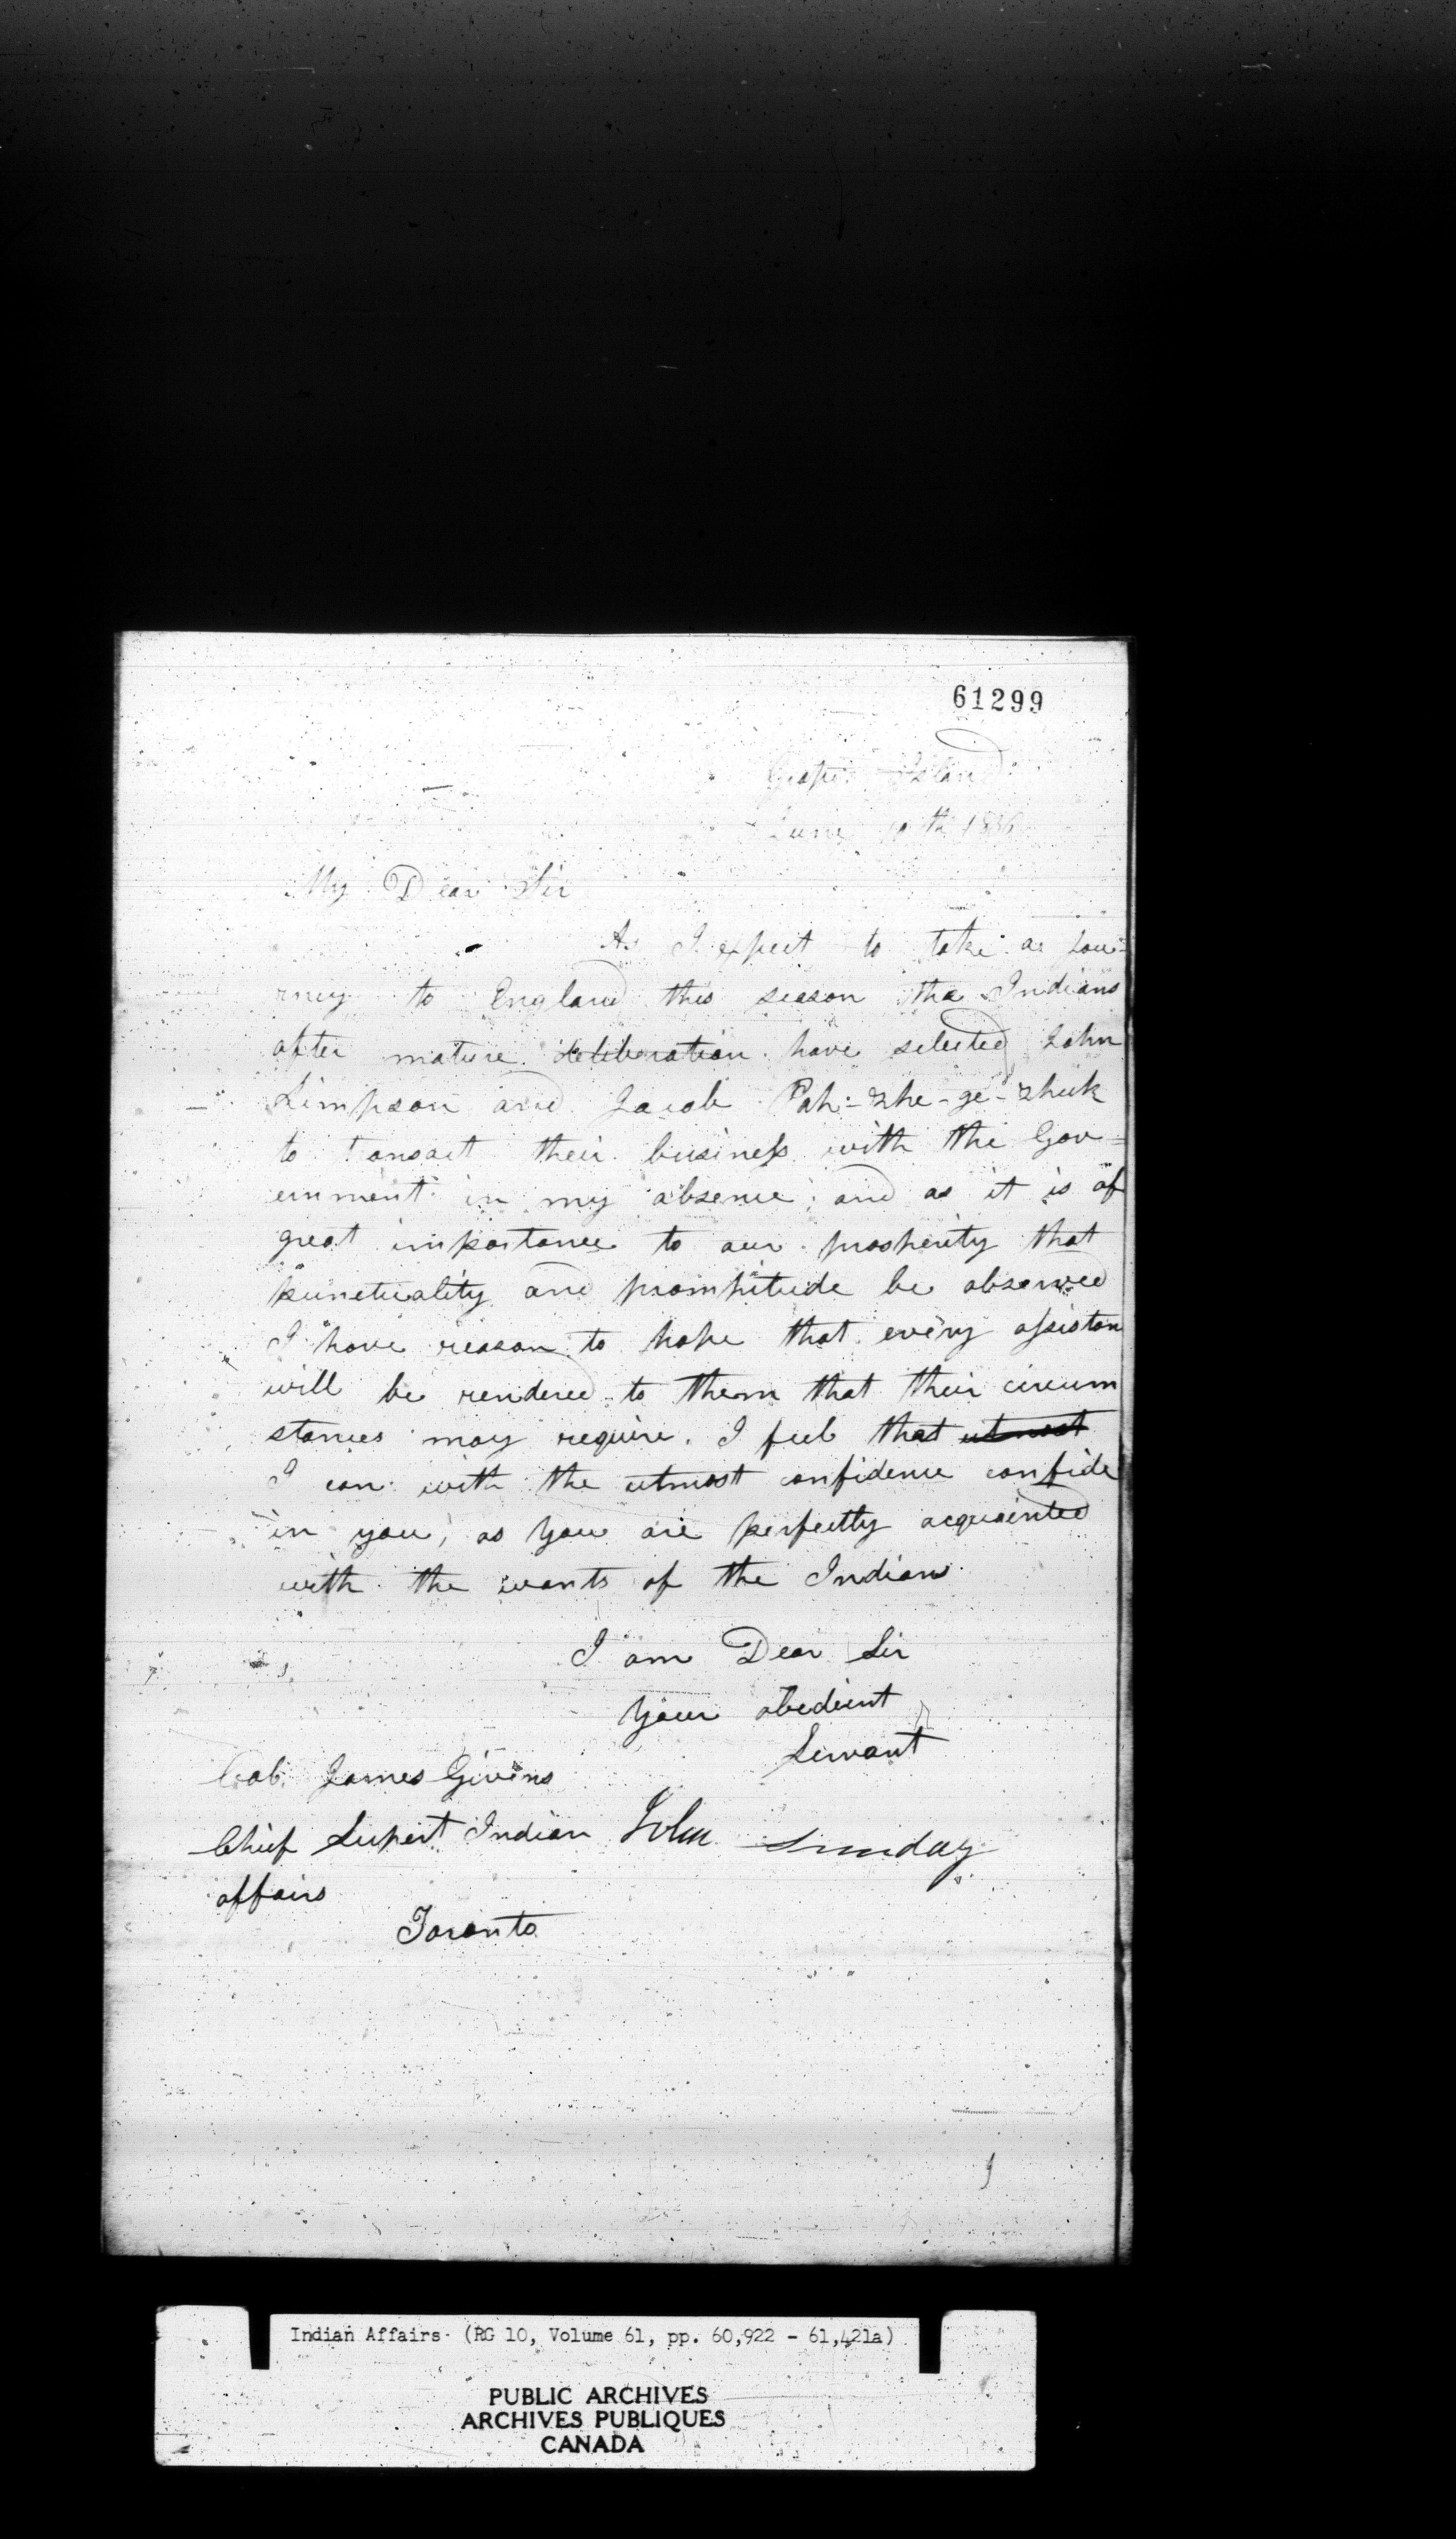 61299
Grape Island
June 10th 1836
My Dear Sir
As I expect to take a jou-
rney to England this season the Indians
after mature deliberation have selected John
Simpson and Jacob Pah-zhe-ge-zhuk
to transact their business with the Gov=
ernment in my absence, and as it is of
great importance to our prosperity that
punctuality and promptitude be observed
I have reason to hope that every assistan
will be rendered to them that their circum
stances may require. I feel that utmost
I can with the utmost confidence confide
in you, as you are perfectly acquainted
with the wants of the Indians
I am Dear Sir
Your obedient
Servant
John Sunday
Col. James Givins
Chief Supert Indian
affairs
Toronto
Indian Affairs (RG 10, Volume 61, pp. 60,922 - 61,421a)
PUBLIC ARCHIVES
ARCHIVES PUBLIQUES
CANADA